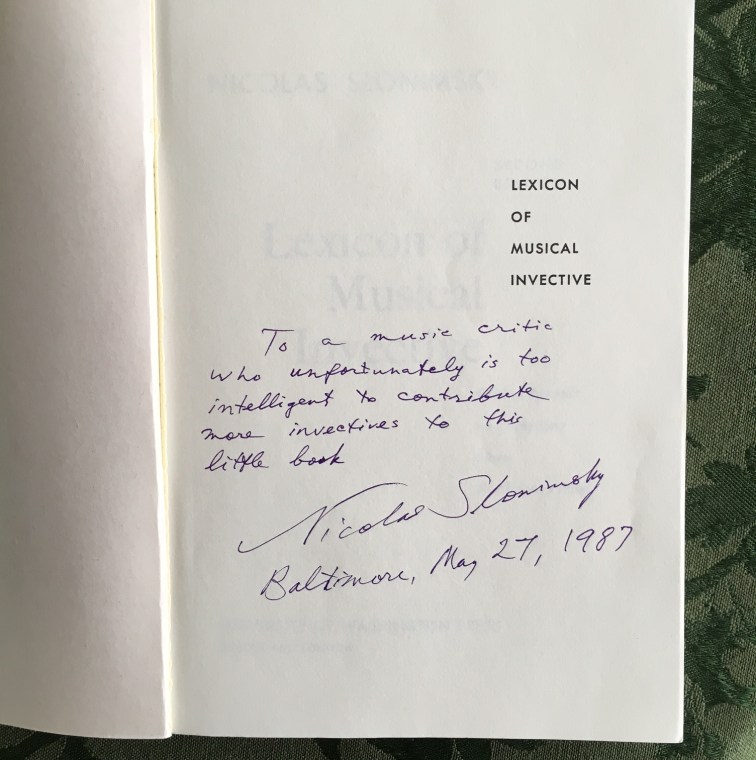 LEXICON
OF
MUSICAL
INVECTIVE
To a music critic
who unfortunately is too
intelligent to contribute
more invectives to this
little book
Nicolas Slonimsky
Baltimore, May 27, 1987
NICOLAS SLONIMSKY
Lexicon of
Musical
Invective